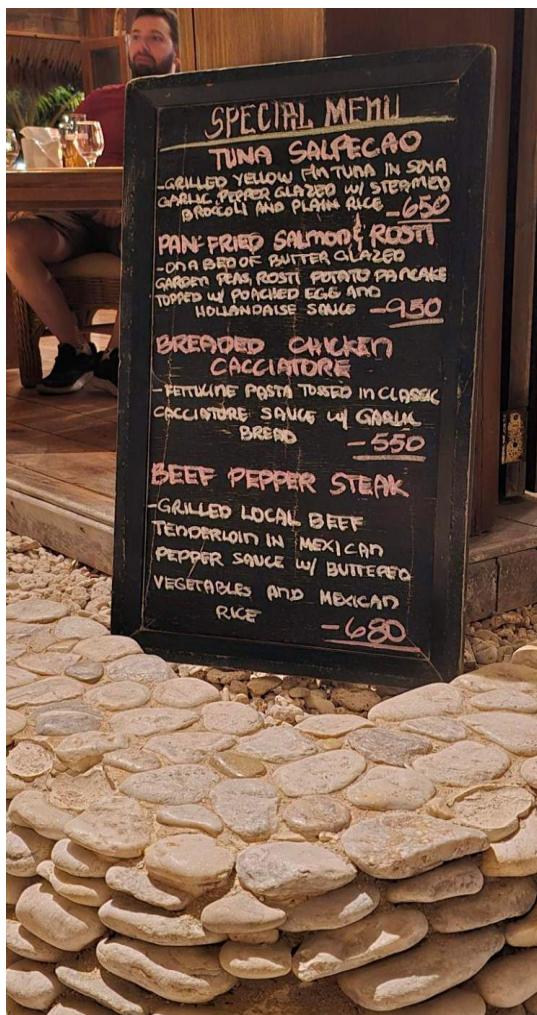 SPECIAL MENU
TUNA SALPECAO
-GRILLED YELLOW FIN TUNA IN SOYA
GARLIC, PEPPER GLAZED W/ STEAMED
BROCCOLI AND PLAIN RICE -650
PAN-FRIED SALMON & ROSTI
-ON A BED OF BUTTER GLAZED
GARDEN PEAS, ROSTI POTATO PANCAKE
TOPPED W/ POACHED EGG AND
HOLLANDAISE SAUCE -950
BREADED CHICKEN
CACCIATORE
-FETTUCINE PASTA TOSSED IN CLASSIC
CACCIATORE SAUCE W/ GARLIC
BREAD
-550
BEEF PEPPER STEAK
-GRILLED LOCAL BEEF
TENDERLOIN IN MEXICAN
PEPPER SAUCE W/ BUTTERED
VEGETABLES AND MEXICAN
RICE
-680